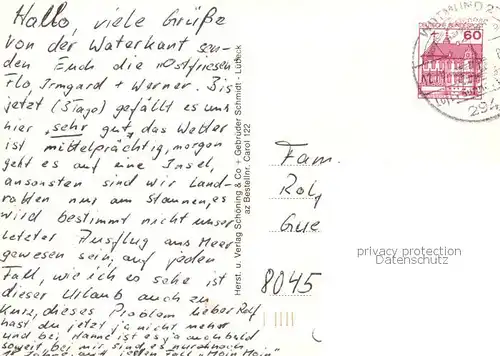 Hallo, viele Grüße
von der Waterkant sen-
den Euch die "Ostfriesen"
Flo, Irmgard + Werner. Bis
jetzt (3 Tage) gefällt es uns
hier sehr gut, das Wetter
ist mittelprächtig, morgen
geht es auf eine Insel,
ansonsten sind wir Land-
ratten nur am Staunen, es
wird bestimmt nicht unser
letzter Ausflug ans Meer
gewesen sein, auf jeden
Fall, wie ich es sehe ist
dieser Urlaub auch zu
kurz, dieses Problem lieber Rolf
hast du jetzt ja nicht mehr
und bei Hanne ist es ja auch bald
soweit, bei mir sind es nur noch
Jahre, auf jeden Fall "Moin Moin"
Herst. u. Verlag Schöning & Co + Gebrüder Schmidt - Lübeck
az Bestellnr. Carol 122
60
Fam.
Rolf
8045
privacy protection
Datenschutz